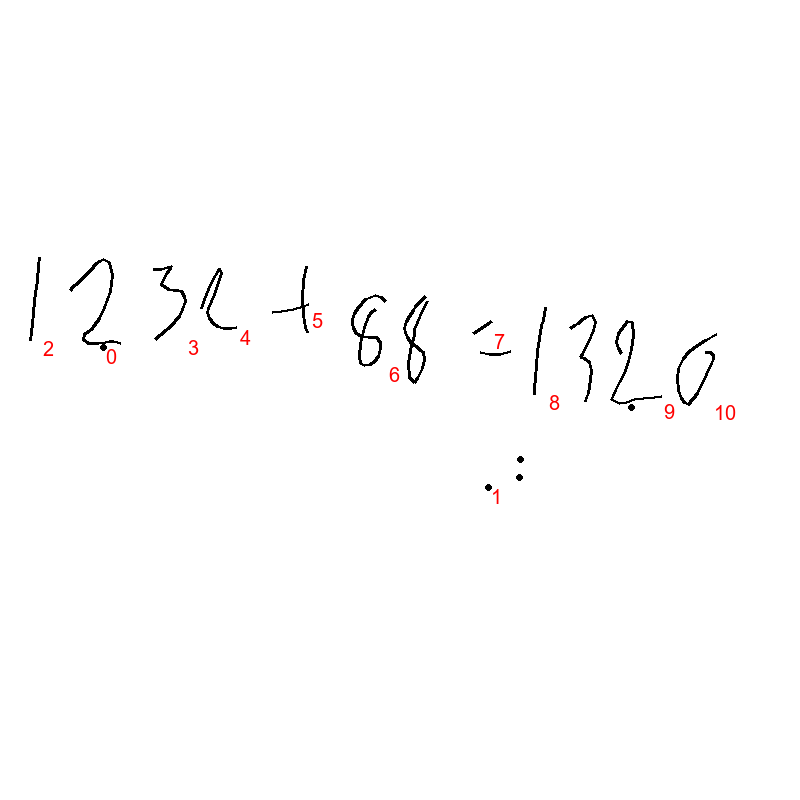 1232+88=1320
2 0 3 4 5 6 7 8 9 10
1